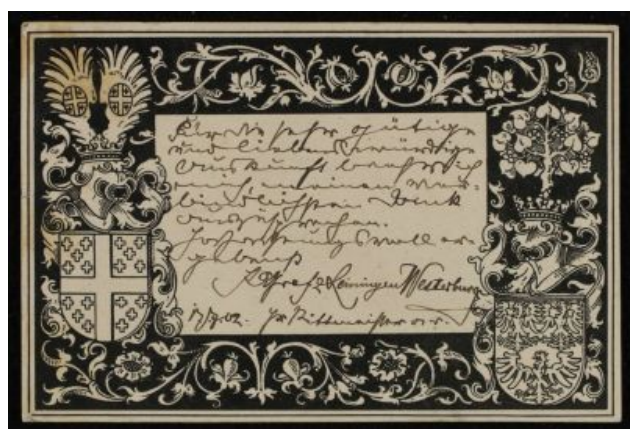 Für die sehr gütige
und liebenswürdige
Auskunft beehre ich
mich meinen ver-
bindlichsten Dank
auszusprechen.
Hochachtungsvoll er-
gebenst
K Graf z Leiningen Westerburg
17/7.02. Rittmeister a. D.